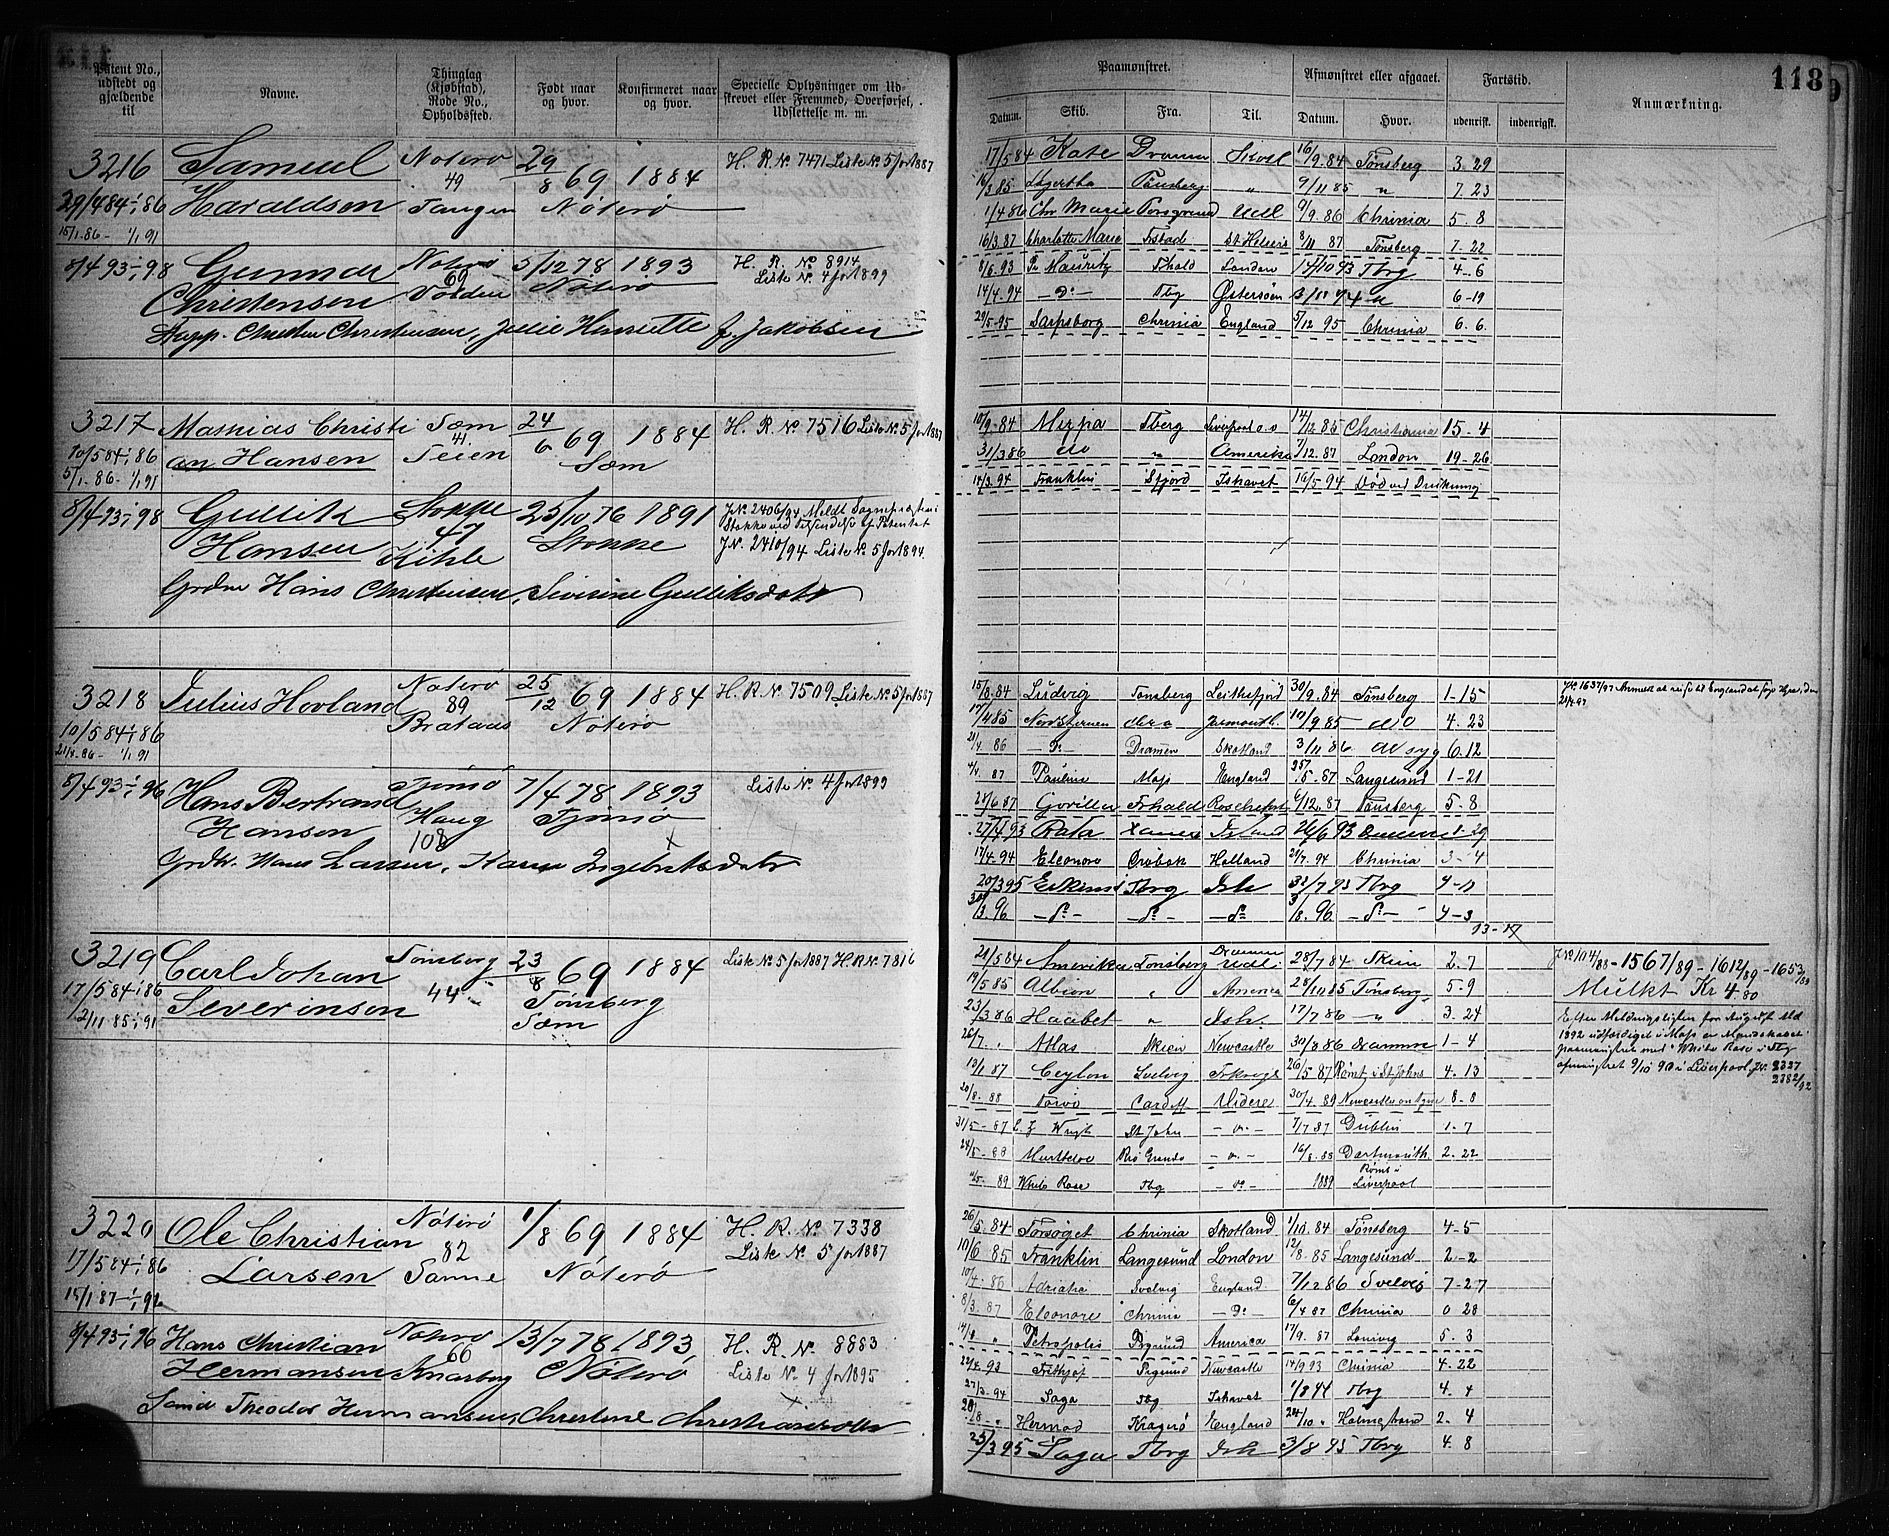 118
Patent No., udstedt og gjældende til
Navne.
Thinglag (Kjøbstad), Rode No., Opholdssted.
Født naar og hvor.
Konfirmeret naar og hvor.
Specielle Oplysninger om Udskrevet eller Fremmed, Overførsel, Udslettelse m. m.
Paamønstret.
Afmønstret eller afgaaet.
Fartstid.
Anmærkning.
Datum. Skib. Fra. Til. Datum. Hvor. udenrisk. indenrigsk.
3216 Samuel Nøterø 29/8 69 1884 H. R. No 7471 Liste No 5 for 1887
49
29/4 84 - 1/1 86 Haraldsen Tangen Nøterø
15/1 86 - 1/1 91
8/4 93 - 1/1 98 Gunnar Nøterø 5/12 78 1893 H. R. No 8914
69 Liste No 4 for 1899
Christensen Nøterø
Christen Christensen, Julie Henriette f. Jakobsen
3217 Mathias Christi Sæm 24/6 69 1884 H. R. No 7516 Liste No 5 for 1887
41.
10/5 84 - 1/1 86 an Hansen Teien Sæm
5/1 86 - 1/1 91
8/4 93 - 1/1 98 Gullik Stokke 25/10 76 1891 J.No 2406/94 Meldt Sognepræsten i
47 Stokke ved Tilsendelse af Patentet
Hansen Kihle Stokke J.No 2410/94 Liste No 5 for 1894.
Grdbr Hans Christensen, Sivirine Gulliksdatr
3218 Julius Hovland Nøterø 25/12 69 1884 H. R. No 7509 Liste No 5 for 1887
89
10/5 84 - 1/1 86 Brataas Nøterø
8/4 93 - 1/1 96 Hans Bertrand Tjømø 7/4 78 1893 Liste No 4 for 1899
Hansen Haug Tjømø
108
Grdbr. Hans Larsen, Karen Ingebretsdatr
3219 Carl Johan Tønsberg 23/8 69 1884 Liste No 5 for 1887 H R No 7816
17/5 84 - 1/1 86 Severinsen 44 Tønsberg
2/11 85 - 1/1 91 Sæm
3220 Ole Christian Nøterø 1/8 69 1884 H. R. No 7338
82 Liste No 5 for 1887
17/5 84 - 1/1 86 Larsen Sanne Nøterø
8/4 93 - 1/1 96 Hans Christian Nøterø 13/7 78 1893, H. R. No 8883
66
Hermansen Knarberg Nøterø Liste No 4 for 1895
Theodor Hermansen, Christine Christiansdatter
17/5 84 Kate Dramn Skotl 16/9.84 Tønsberg 3.29
Tønsberg „ 9/11 85 „ 7.23
1/4 86 Chr Marie Porsgrund Udl 9/9.86 Chrinia 5.8
16/3.87 Charlotte Marie Frstad St Helens 8/11 87 Tønsberg 7.22
8/6.93 Pr Mauritz Frhald London 14/10 93 Tbrg 4-6
14/4.94 —Do— Tbg Østersøen 6-19
29/5-95 Sarpsborg Chrinia England 5/12 95 Chrinia 6.6.
10/9-84 Tberg Liverpool o.s 14/12 85 Christiania 15-4
31/3 86 do „ Amerika 7/12.87 London 19.26
14/3.94 Franklin Sfjord Ishavet 16/5-94 Død ved Drukning
15/8.84 Ludvig Tønsberg Leithsfjord 30/9.84 Tønsberg 1-15
17/4 85 Nordstjernen 10/9.85 do 4.23
21/4 86 —Do— Dramen Skotland 3/11 86 6.12
4/4 87 Pauline Moss England 5.87 Langesund 1-21
28/6 87 Gorilla Frhald Rochefort 6/12.87 Tønsberg 5-8
27/4 93 24/6 93 1-29
17/4.94 Eleonore Drøbak Holland 21/7.94 Chrinia 3-4
20/3 95 Tbrg Ish Tbrg 4-11
30/3.96 —Do— —Do— —Do— 3/8.96 —Do— 4-3
13-17
J.No 1637/97 Anmeldt at reise til England
21/5 84 Amerika Tønsberg Drammen Udl. 28/7 84 Skien 2.7
19/5 85 Albion „ America 28/11 85 Tønsberg 5-9
23/3 86 Haabet „ Ish. 17/7 86 „ 3.24
26/7. „ Atlas Skien Newcastle 30/8 86 Dramme 1-4
13/1 87 Ceylon Svelvig Frkrige 26/5 87 Rømt i St Johns 4.13
20/8.88 Norvo Cardiff Videre 30/4.89 Newcastle on Tyne 8-8
31/5-87 St John —„— 7/7 87 Dublin 1.7
24/5-88 Rio Grande —„— 16/8.88 Dartmouth 2.22
89 White Rose Tbg —Do— 1889 Rømt i Liverpool
J.No 104/88-1567/89-1612/89-1653/89
Mulkt Kr 4.80
Efter Meldingslisten for August Md
1892 udfærdiget i Moss er Mandskabet
paamønstret med "White Rose" i Tbg
afmønstret 9/10 90 i Liverpool, Jr. 2327
2382/92
26/5.84 Forsøget Chrinia Skotland 1/10.84 Tønsberg 4-5
10/6 85 Franklin Langesund London 12/8.85 Langesund 2-2
10/4.86 Adriana Svelvig England 7/12 86 Svelvig 7-27
8/3.87 Eleonore Chrinia —Do— 6/4 87 Chrinia 0 28
14/4 „ Petropolis Prgrund America 17/9.87 5.3
24/4.93 Frithjof Prgrund Newcastle 14/9 93 Chrinia 4.22
27/3.94 Saga Tbg Ishavet 1/8 94 Tbrg 4.4
20/8-„ Hermod Kragerø England 24/10 „ Holmestrand 2.4
25/3 95 Saga Tbrg Ish 3/8 95 Tbrg 4.8